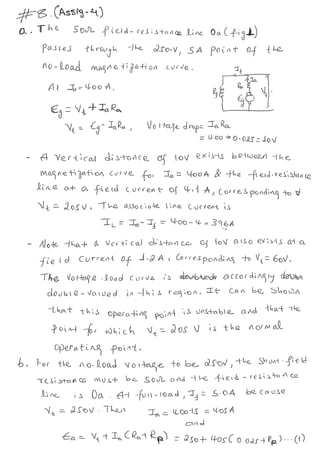 #8. (Assig-4)
a. The 50Ω field-resistance line 0a (fig 1)
passes through the 250-V, 5A point of the
no-load magnetization curve.
At Ia = 400A.
Eg = Vt + IaRa
Vt = Eg - IaRa, Voltage drop = IaRa
= 400 * 0.025 = 10V
If
Ia
Rf
Ra
Eg
Vt
- A vertical distance of 10V exists between the
magnetization curve for Ia = 400A & the field-resistance
line at a field current of 4.1 A, corresponding to
Vt = 205V. The associate line current is
IL = Ia - If = 400 - 4 = 396A
- Note that a vertical distance of 10V also exists at a
field current of 1.2A, corresponding to Vt = 60V.
The voltage-load curve is accordingly
double-valued in this region. It can be shown
that this operating point is unstable and that the
point for which Vt = 205 V is the normal
operating point.
b. For the no-load voltage to be 250V, the shunt-field
resistance must be 50Ω and the field-resistance
line is 0a. At full-load, If = 5.0A because
Vt = 250V. Then Ia = 400+5 = 405A
and
Ea = Vt + Ia(Ra+Rp) = 250 + 405(0.025+Rp)...(1)